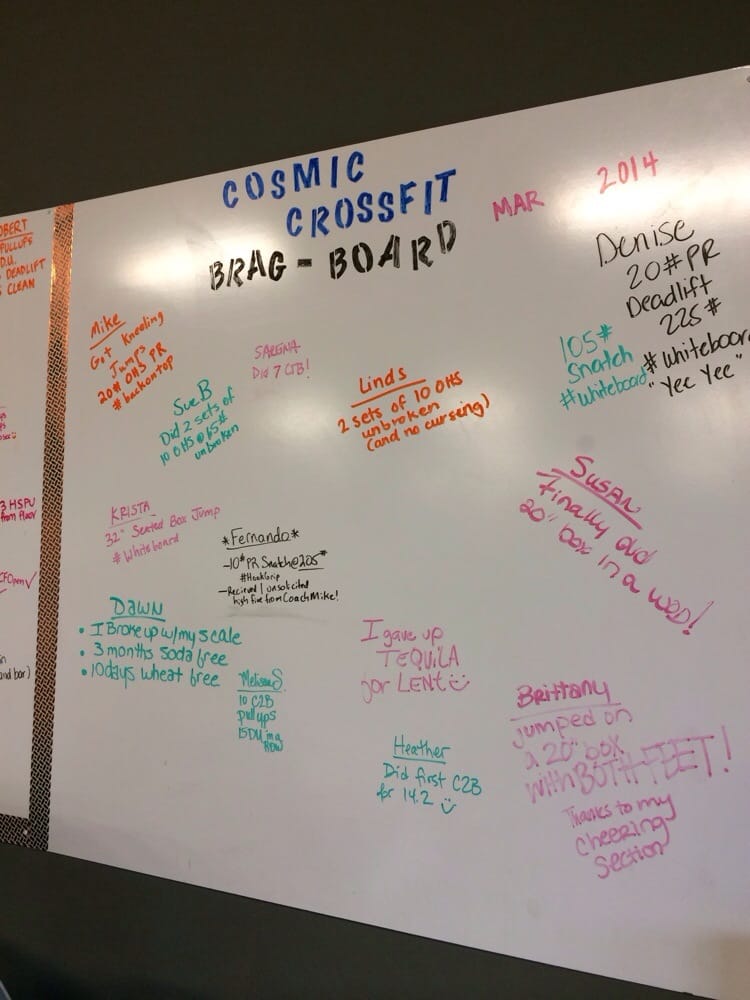 COSMIC
CROSSFIT
BRAG-BOARD
MAR 2014
PULLUPS
D.U.
DEADLIFT
CLEAN
3 HSPU
from floor
Mike
Got Kneeling
Jumps
20# OHS PR
#backontop
Sue B
Did 2 sets of
10 OHS @ 65#
unbroken
SARENA
Did 7 CTB!
Linds
2 sets of 10 OHS
unbroken
(and no cursing)
Denise
20# PR
Deadlift
225#
#whiteboard
"Yee Yee"
105#
Snatch
#whiteboard
KRISTA
32" Seated Box Jump
#Whiteboard
*Fernando*
-10# PR Snatch@205#
#HookGrip
-Recieved 1 unsolicited
high five from Coach Mike!
SUSAN
Finally did
20" box in a WOD!
DAWN
• I Broke up w/my scale
• 3 months soda free
• 10 days wheat free
Melissa S.
10 C2B
pullups
15 DU in a
ROW
I gave up
TEQUILA
for LENT
Heather
Did first C2B
for 14.2
Brittany
jumped on
a 20" box
with BOTH FEET!
Thanks to my
Cheering
Section